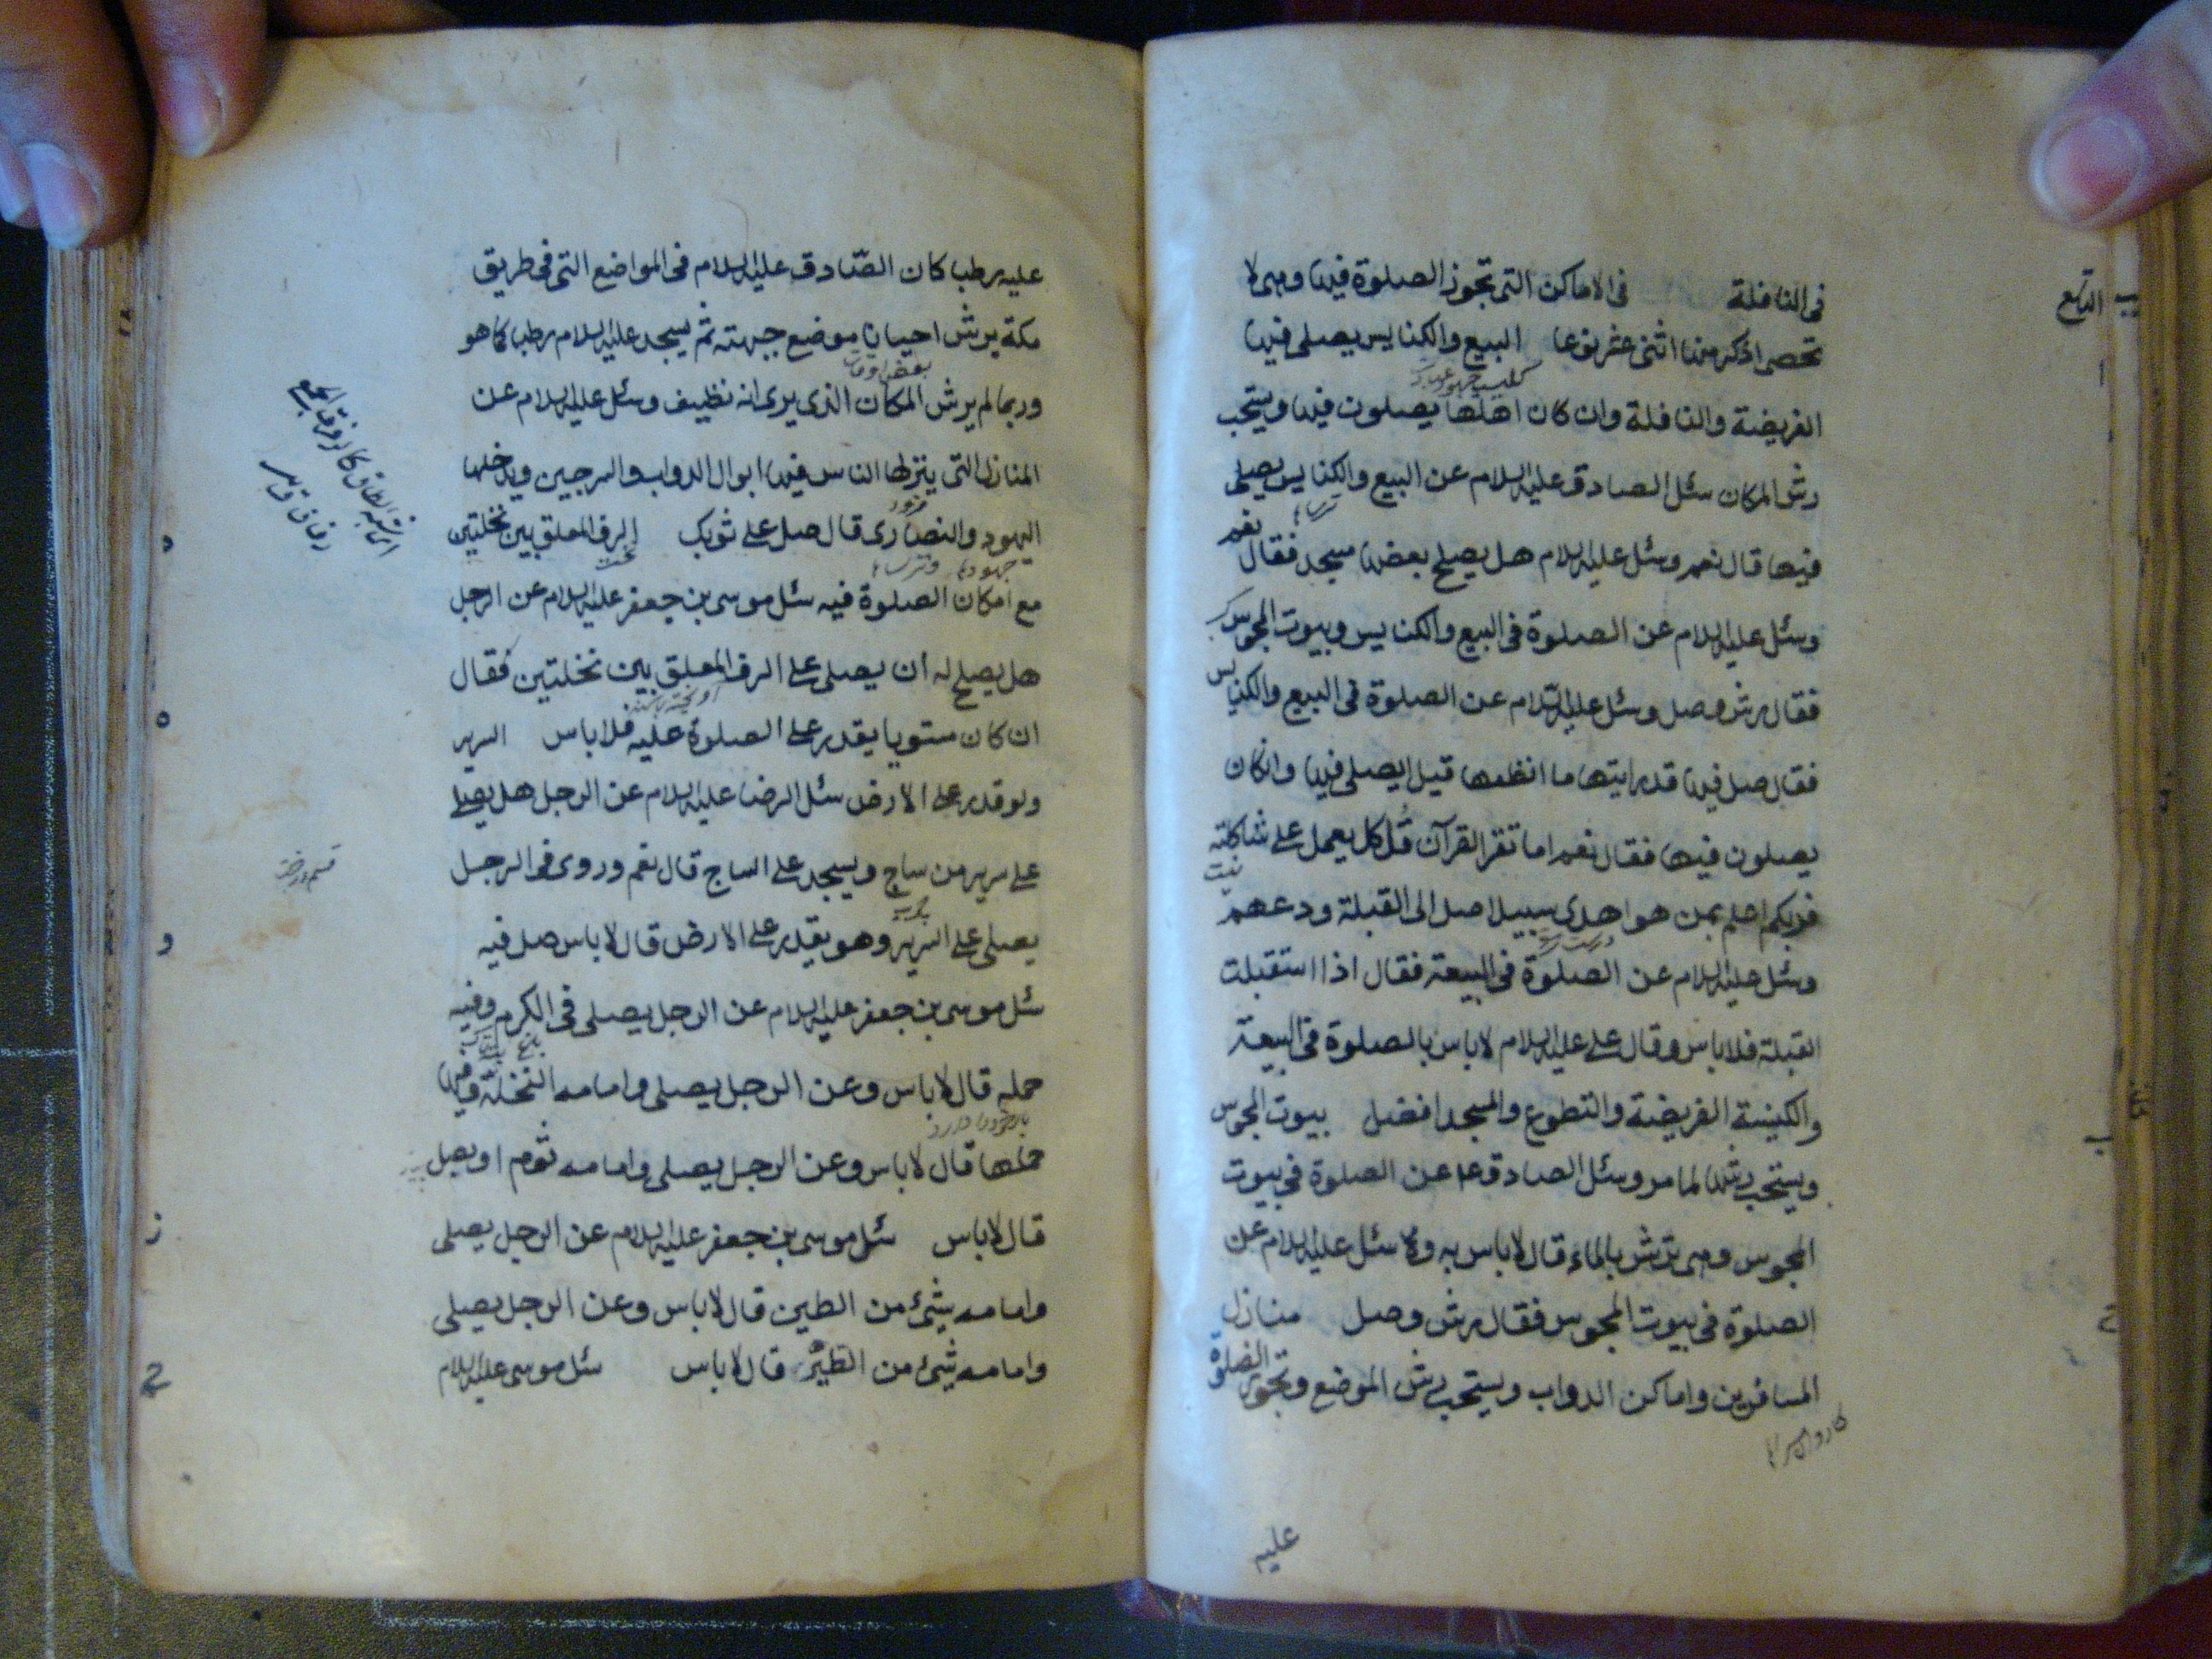 في النافلة في الاماكن التي تجوز الصلوة فيها وهي لا
تحصى اذكر منها اثنى عشر نوعا البيع والكنايس يصلى فيها
الفريضة والنافلة وان كان اهلها يصلون فيها ويستحب
رش المكان سئل الصادق عليه السلام عن البيع والكنايس يصلى
فيها قال نعم وسئل عليه السلام هل يصلح بعضها مسجد فقال نعم
وسئل عليه السلام عن الصلوة في البيع والكنايس وبيوت المجوس
فقال رش وصل وسئل عليه السلام عن الصلوة في البيع والكنايس
فقال صل فيها قد رايتها ما انظفها قيل ايصلى فيها وان كان
يصلون فيها فقال نعم اما تقر القرآن قل كل يعمل على شاكلته
فربكم اعلم بمن هو اهدى سبيلا صل الى القبلة ودعهم
وسئل عليه السلام عن الصلوة في البيعة فقال اذا استقبلت
القبلة فلا باس وقال علي عليه السلام لا باس بالصلوة في البيعة
والكنيسة الفريضة والتطوع والمسجد افضل بيوت المجوس
ويستحب رشها لما مر وسئل الصادق ع عن الصلوة في بيوت
المجوس وهي ترش بالماء قال لا باس به و سئل عليه السلام عن
الصلوة في بيوت المجوس فقال رش وصل منازل
المسافرين واماكن الدواب ويستحب رش الموضع وتجوز الصلوة
عليه
التاسع
عليه رطبا كان الصادق عليه السلام في المواضع التي في طريق
مكة يرش احيانا موضع جبهته ثم يسجد عليه السلام رطبا كما هو
بعض اوقات
وربما لم يرش المكان الذي يرى انه نظيف وسئل عليه السلام عن
المنازل التي ينزلها الناس فيها ابوال الدواب والسرجين ويدخلها
اليهود والنصارى قال صل على ثوبك الرف المعلق بين نخلتين
مع امكان الصلوة فيه سئل موسى بن جعفر عليه السلام عن الرجل
هل يصلح له ان يصلى على الرف المعلق بين نخلتين فقال
ان كان مستويا يقدر على الصلوة عليه فلا باس السرير
ولو قدر على الارض سئل الرضا عليه السلام عن الرجل هل يصلى
على سرير من ساج ويسجد على الساج قال نعم وروى في الرجل
يصلى على السرير وهو يقدر على الارض قال لا باس صل فيه
سئل موسى بن جعفر عليه السلام عن الرجل يصلى في الكرم وفيه
حمله قال لا باس وعن الرجل يصلى وامامه النخلة وفيها
حملها قال لا باس وعن الرجل يصلى وامامه ثوم او بصل
قال لا باس سئل موسى بن جعفر عليه السلام عن الرجل يصلى
وامامه شيئ من الطين قال لا باس وعن الرجل يصلى
وامامه شيئ من الطير قال لا باس سئل موسى عليه السلام